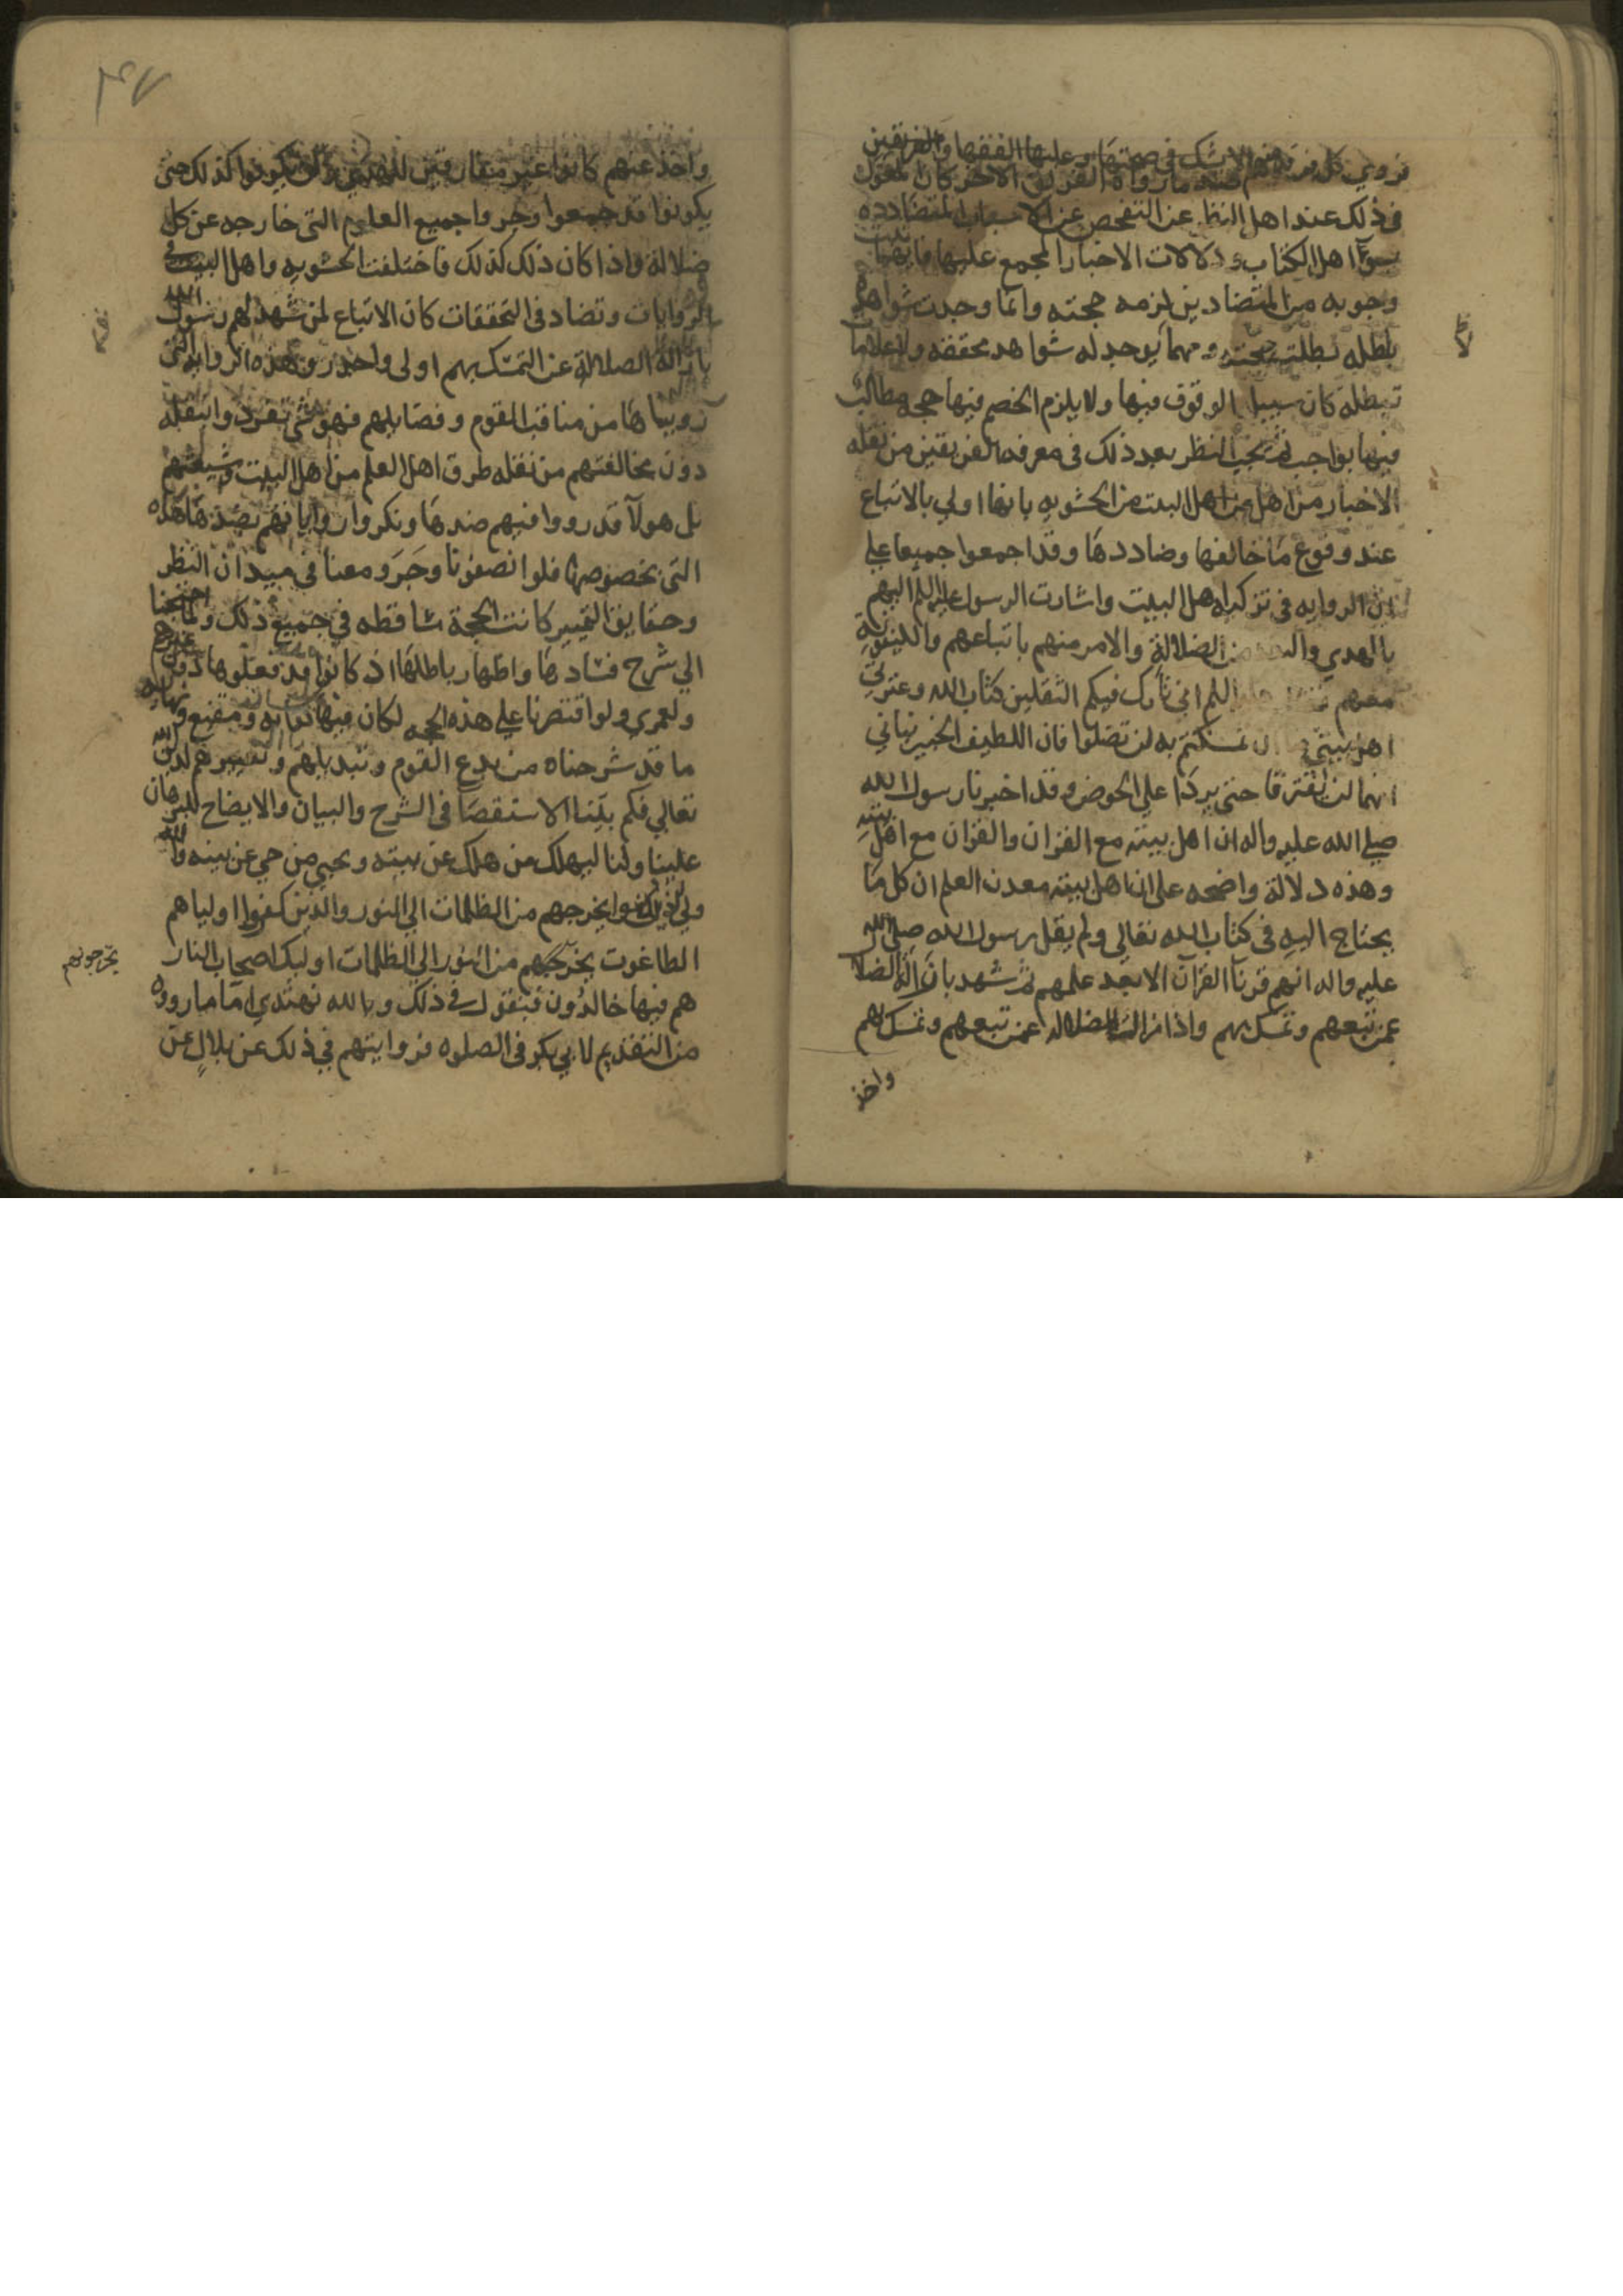 فروي كل فريق منهم ضد ما رواه الفريق الاخر كان القول
في ذلك عند اهل النظر عند التفحص عن الاسباب المتضادده
اهل الكتاب ودلالات الاخبار المجمع عليها فايهما
وجوبه من المتضادين لزمه حجته وانما وجدت شواهد
باطله بطلت حجته ومهما يوجد له شواهد محققه ولا علامات
تبطله كان سبيل الوقوف فيها ولا يلزم الخصم فيها حجه مطالب
فيها بواجب ثم يجب النظر بعد ذلك في معرفه الفريقين من نقله
الاخبار من اهل البيت من الحشويه بانها اولي بالاتباع
عند وقوع ما خالفها وضاددها وقد اجمعوا جميعا علي
الروايه في تزكيه اهل البيت واشارت الرسول عليه السلم اليهم
بالهدي من الضلالة والامر منهم باتباعهم والكينونة
معهم اني تارك فيكم الثقلين كتاب الله وعترتي
اهل بيتي ان تمسكتم به لن تضلوا فان اللطيف الخبير نباني
انهما لن يفترقا حتى يردا علي الحوض وقد اخبرنا رسول الله
صلي الله عليه واله ان اهل بيته مع القران والقران مع اهل بيته
وهذه دلالة واضحه علي ان اهل بيته معدن العلم ان كل ما
يحتاج اليه في كتاب الله تعالي ولم يقل رسول الله صلى الله
عليه واله انهم قرنآ القران الا بعد علمهم ثم شهد بازالة الضلا
عمن تبعهم وتمسك بهم واذا زالت الضلاله عمن تبعهم وتمسك بهم
واخذ
٣٧
واخذ عنهم كانوا غير مفارقين للهدي ولن يكونوا كذلك حتى
يكونوا قد جمعوا وحووا جميع العلوم التي خارجه عن كل
ضلالة واذا كان ذلك كذلك فاختلفت الحشويه واهل البيت في
الروايات وتضاد في التحققات كان الاتباع لمن شهد لهم رسول الله
بازالة الضلالة عن التمسك بهم اولى واحذر وهذه الروايه التي
رويناها من مناقب القوم وفضايلهم فهو شي تفرد وابنقله
دون مخالفتهم من نقله طرق اهل العلم من اهل البيت وشيعتهم
بل هولآ قد رووا فيهم ضدها ونكروا رواياتهم بضدها هذه
التي يخصوصها فلوا نصفونا وجروا معنا في ميدان النظر
وحقايق التمييز كانت الحجة ساقطه في جميع ذلك ولما احتجنا
الي شرح فسادها واظهار باطلها اذ كانوا قد فعلوها دون غيرهم
ولعمري ولو اقتصرنا علي هذه الحجه لكان فيها كفايه ومقنع ونهايه
ما قد شرحناه من بدع القوم وتبديلهم وتغييرهم لدين الله
تعالي فكم بلنا الاستقصا في الشرح والبيان والايضاح للبرهان
علينا ولنا ليهلك من هلك عن بينه ويحيي من حي عن بينه والله
ولي الذين امنوا يخرجهم من الظلمات الي النور والذين كفروا اولياهم
الطاغوت يخرجهم من النور الي الظلمات اوليك اصحاب النار
يخرجونهم
هم فيها خالدون فنقول في ذلك وبالله نهتدي اما ما رووه
من التقديم لابي بكر في الصلوه فروايتهم في ذلك عن بلال عن